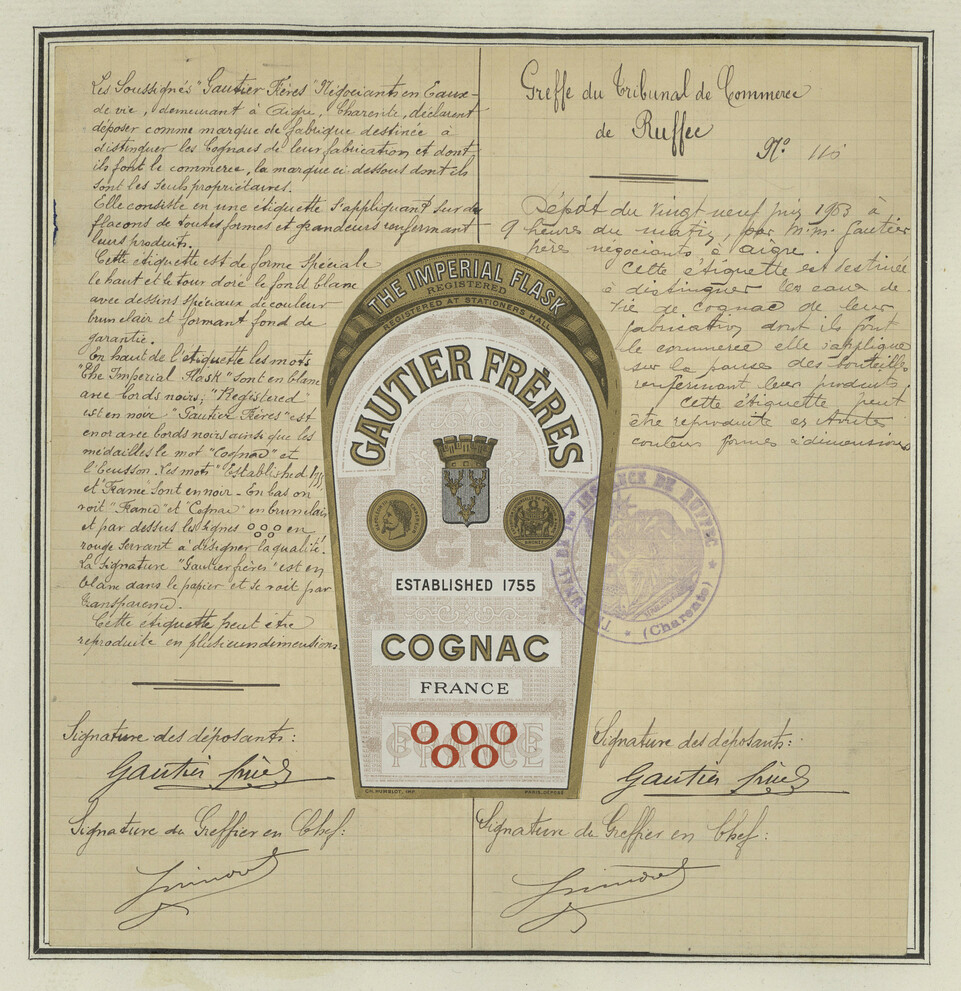 Les Soussignés "Gautier Frères" Négociants en Eaux-
de vie, demeurant à Aigre, Charente, déclarent
déposer comme marque de fabrique destinée à
distinguer les Cognacs de leur fabrication et dont
ils font le commerce, la marque ci dessous dont ils
sont les seuls propriétaires.
Elle consiste en une étiquette s'appliquant sur des
flacons de toutes formes et grandeurs renfermant
leurs produits.
Cette étiquette est de forme spéciale
le haut et le tour doré le fond blanc
avec dessins spéciaux de couleur
brun clair et formant fond de
garantie.
En haut de l'étiquette les mots
"The Imperial Flask" sont en blanc
avec bords noirs; "Registered"
est en noir "Gautier Frères" est
en or avec bords noirs ainsi que les
médailles le mot "Cognac" et
l'Ecusson. Les mots "Established 1755
et France sont en noir - En bas on
voit "France" et Cognac" en brun clair
et par dessus les signes ooo oo en
rouge servant à désigner la qualité.
La signature "Gautier frères" est en
blanc dans le papier et se voit par
transparence.
Cette étiquette peut être
reproduite en plusieurs dimensions.
Signature des déposants:
Gautier frères
Signature du Greffier en Chef:
Greffe du Tribunal de Commerce
de Ruffec
N° 110
Dépôt du vingt neuf juin 1903 à
9 heures du matin, par M.M. Gautier
frères négociants à Aigre.
Cette étiquette est destinée
à distinguer les eaux de
vie de cognac de leur
fabrication dont ils font
le commerce elle s'applique
sur la panse des bouteilles
renfermant leur produits
Cette étiquette peut
être reproduite en toutes
couleurs formes & dimensions
THE IMPERIAL FLASK
REGISTERED
REGISTERED AT STATIONERS HALL
GAUTIER FRÈRES
GF
ESTABLISHED 1755
COGNAC
FRANCE
FRANCE
OOO
OO
CH. HUMBLOT, IMP.
PARIS, DÉPOSÉ
TRIBUNAL DE 1re INSTANCE DE RUFFEC
(Charente)
Signature des déposants:
Gautier frères
Signature du Greffier en Chef: